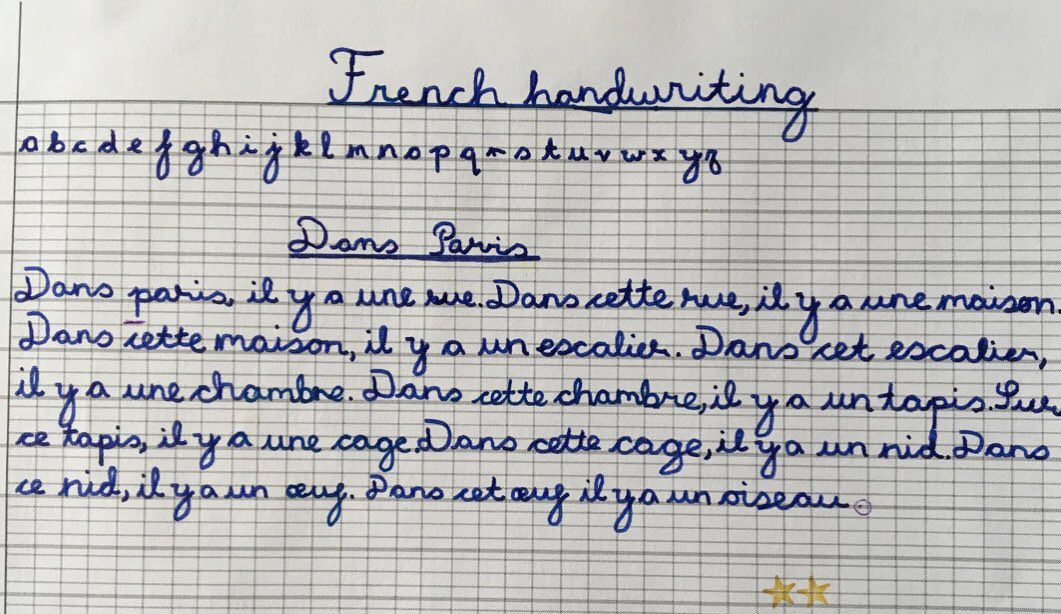 French handwriting
a b c d e f g h i j k l m n o p q r s t u v w x y z
Dans Paris
Dans paris, il y a une rue. Dans cette rue, il y a une maison.
Dans cette maison, il y a un escalier. Dans cet escalier,
il y a une chambre. Dans cette chambre, il y a un tapis. Sur
ce tapis, il y a une cage. Dans cette cage, il y a un nid. Dans
ce nid, il y a un œuf. Dans cet œuf il y a un oiseau.